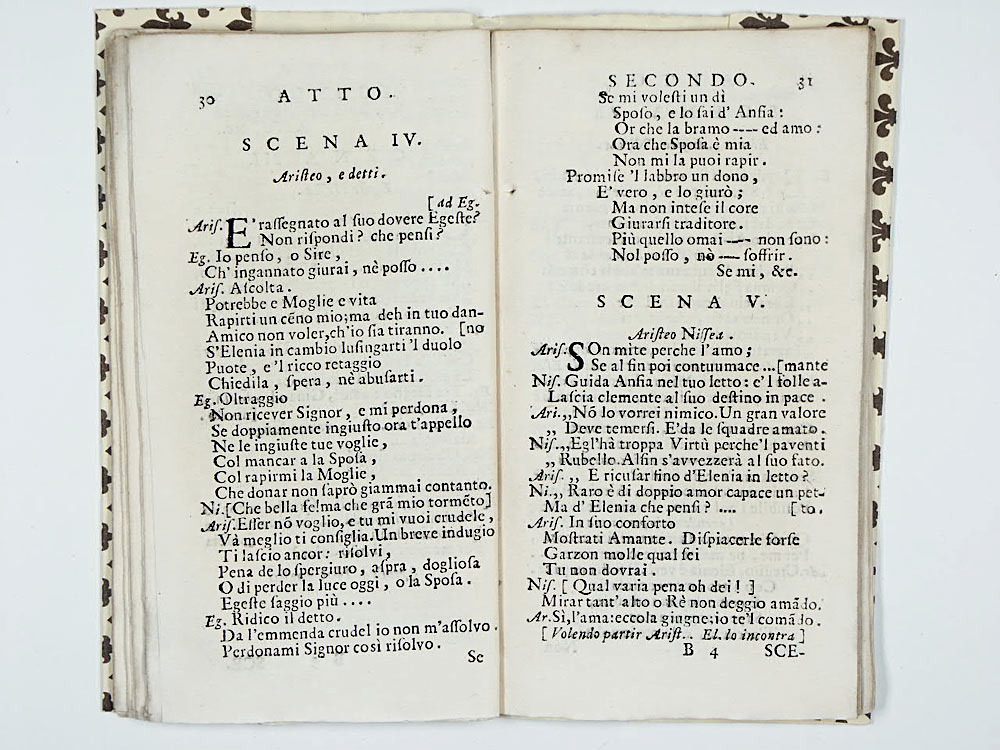 30 ATTO.
SCENA IV.
Aristeo, e detti.
[ad Eg.
Aris. E' rassegnato al suo dovere Egeste?
Non rispondi? che pensi?
Eg. Io penso, o Sire,
Ch' ingannato giurai, nè posso ....
Aris. Ascolta.
Potrebbe e Moglie e vita
Rapirti un cẽno mio; ma deh in tuo dan-
Amico non voler, ch'io sia tiranno. [no
S'Elenia in cambio lusingarti 'l duolo
Puote, e 'l ricco retaggio
Chiedila, spera, nè abusarti.
Eg. Oltraggio
Non ricever Signor, e mi perdona,
Se doppiamente ingiusto ora t'appello
Ne le ingiuste tue voglie,
Col mancar a la Sposa,
Col rapirmi la Moglie,
Che donar non saprò giammai contanto.
Ni. [Che bella fe! ma che grã mio tormẽto]
Aris. Esser nõ voglio, e tu mi vuoi crudele,
Và meglio ti consiglia. Un breve indugio
Ti lascio ancor: risolvi,
Pena de lo spergiuro, aspra, dogliosa
O di perder la luce oggi, o la Sposa.
Egeste saggio più ....
Eg. Ridico il detto.
Da l'emmenda crudel io non m'assolvo.
Perdonami Signor così risolvo.
Se
SECONDO. 31
Se mi volesti un dì
Sposo, e lo sai d' Ansia:
Or che la bramo ---- ed amo:
Ora che Sposa è mia
Non mi la puoi rapir.
Promise 'l labbro un dono,
E' vero, e lo giurò;
Ma non intese il core
Giurarsi traditore.
Più quello omai ---- non sono:
Nol posso, nò ---- soffrir.
Se mi, &c.
SCENA V.
Aristeo Nissea.
Aris. SOn mite perche l'amo;
Se al fin poi contuumace ... [mante
Nis. Guida Ansia nel tuo letto: e'l folle a-
Lascia clemente al suo destino in pace.
Ari. ,, Nõ lo vorrei nimico. Un gran valore
,, Deve temersi. E'da le squadre amato.
Nis. ,, Egl'hà troppa Virtù perche'l paventi
,, Rubello. Alfin s'avvezzerà al suo fato.
Aris. ,, E ricusar fino d'Elenia in letto?
Ni. ,, Raro è di doppio amor capace un pet-
Ma d' Elenia che pensi? .... [to.
Aris. In suo conforto
Mostrati Amante. Dispiacerle forse
Garzon molle qual sei
Tu non dovrai.
Nis. [ Qual varia pena oh dei! ]
Mirar tant' alto o Rè non deggio amãdo.
Ar. Sì, l'ama: eccola giugne; io te'l comãdo.
[ Volendo partir Arist.. El. lo incontra ]
B 4 SCE-